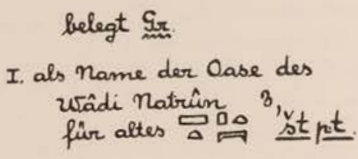 belegt Gr.
I. als Name der Oase des
Wâdi Natrûn
für altes 3, št pt.